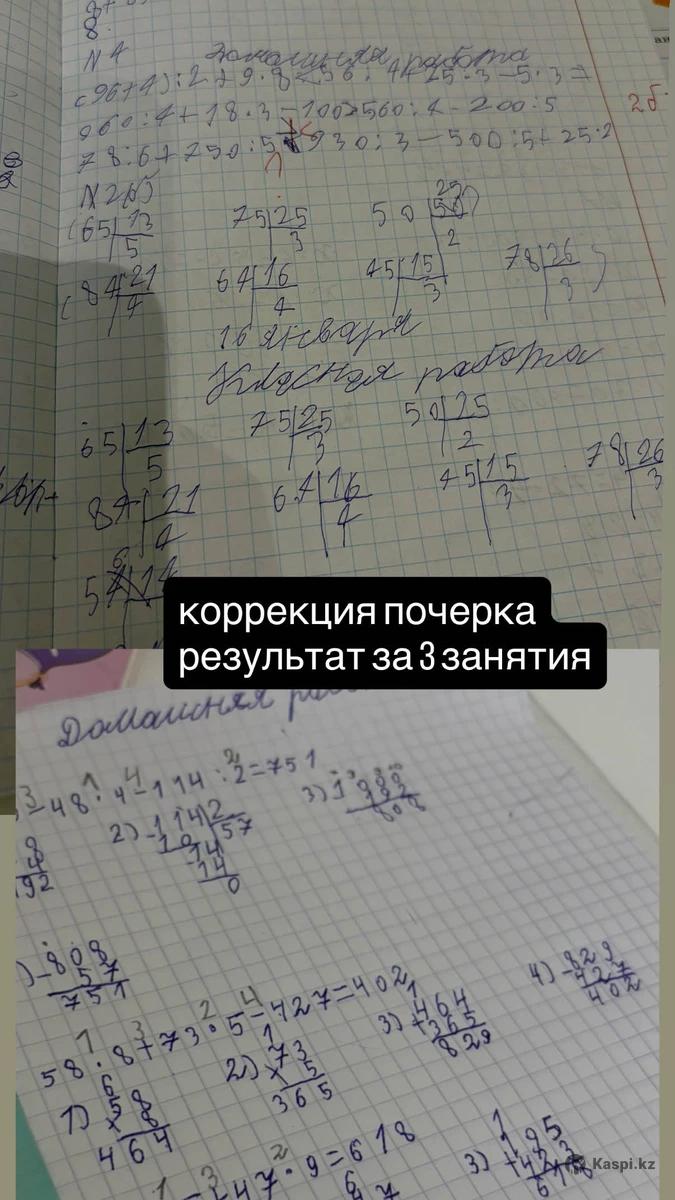 8.
N 4 Домашняя работа
(96+4):2+9·8<56:4+25·3-5·3=
960:4+18·3-100>560:4-200:5
78:6+750:5 930:3-500:5+25·2
2б.
N2(б)
(65 13 5 75 25 3 50 25 2
(84 21 4 64 16 4 45 15 3 78 26 3 )
16 января
Класная работа
65 13 5 75 25 3 50 25 2
84 21 4 64 16 4 45 15 3 78 26 3
54 14
коррекция почерка
результат за 3 занятия
Домашняя
-48:4-114:2=751
2) -114 2 57
10
14
14
0
3) 808
92
-808
57
751
4) -829
427
402
58·8+73·5-427=402
1) 58
×8
464
2) 73
×5
365
3) +464
365
829
47·9=618
3) 195
Kaspi.kz